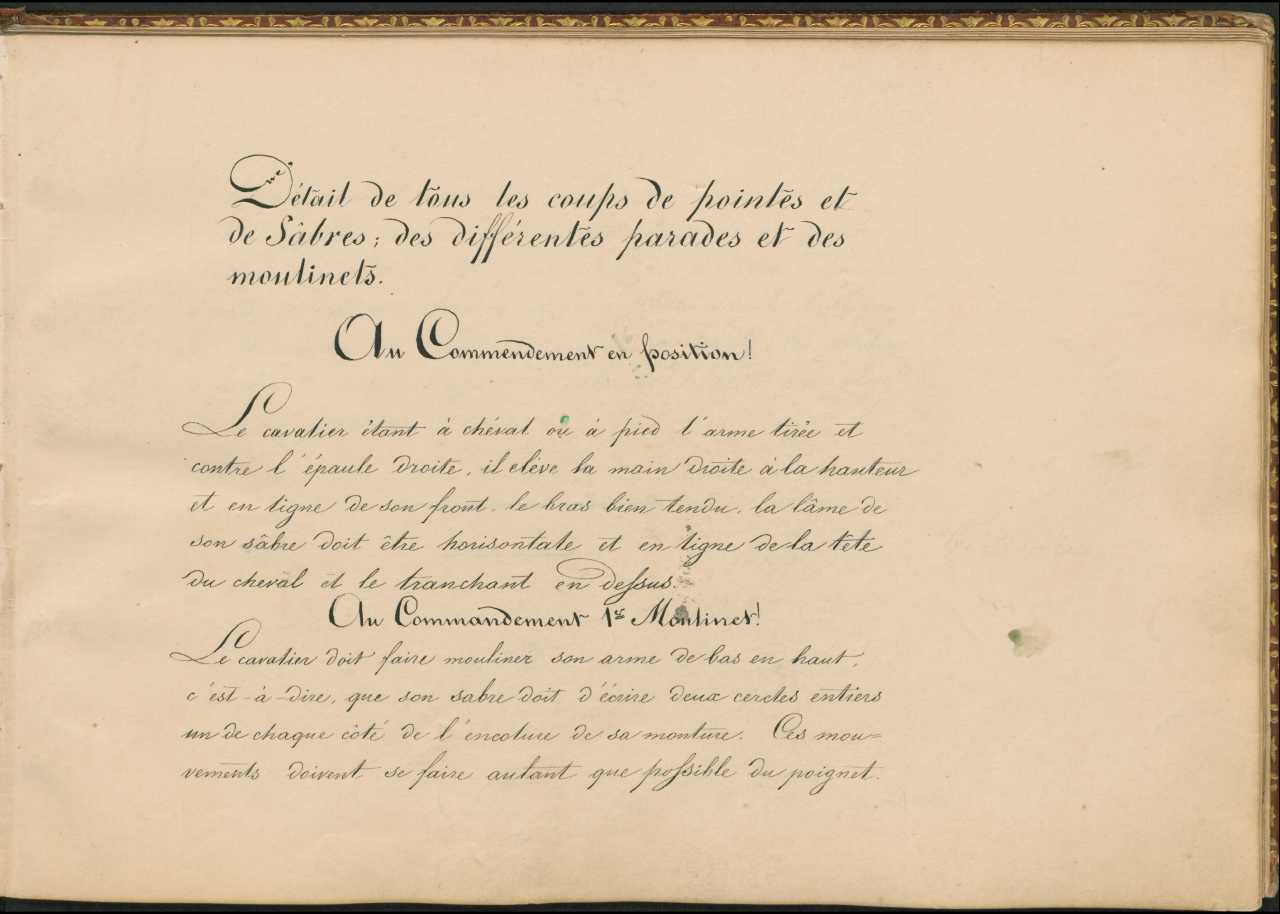 Détail de tous les coups de pointes et
de Sâbres; des différentes parades et des
moulinets.
Au Commendement en position!
Le cavalier étant à chéval où à pied l'arme tirée et
contre l'épaule droite, il elève la main droite à la hauteur
et en ligne de son front. le bras bien tendu, la lâme de
son sâbre doit être horisontale et en ligne de la tête
du cheval et le tranchant en dessus.
Au Commandement 1er Moulinet!
Le cavalier doit faire mouliner son arme de bas en haut,
c'est-à-dire, que son sabre doit d'écrire deux cercles entiers
un de chaque côté de l'encolure de sa monture. Ces mou=
vements doivent se faire autant que possible du poignet.